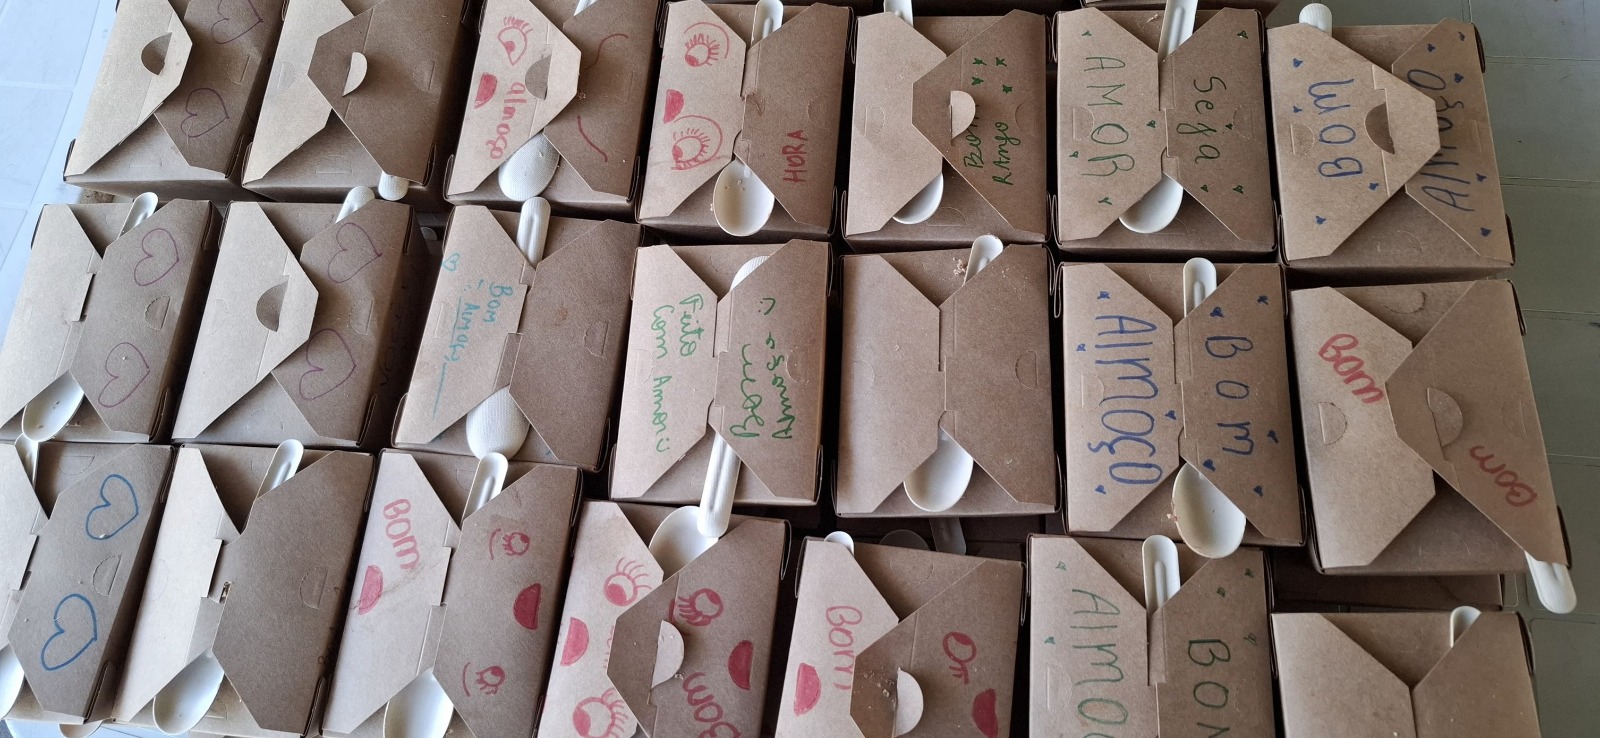 almoço
HORA
Bom
RANgo
AMOR
Seja
BOM
Almoço
Bom
Almoço
Feito
Com Amor :)
Almoço
:)
AlmOçO
Bom
BOM
BOM
BOM
Bom
BOM
Almoç
BOM